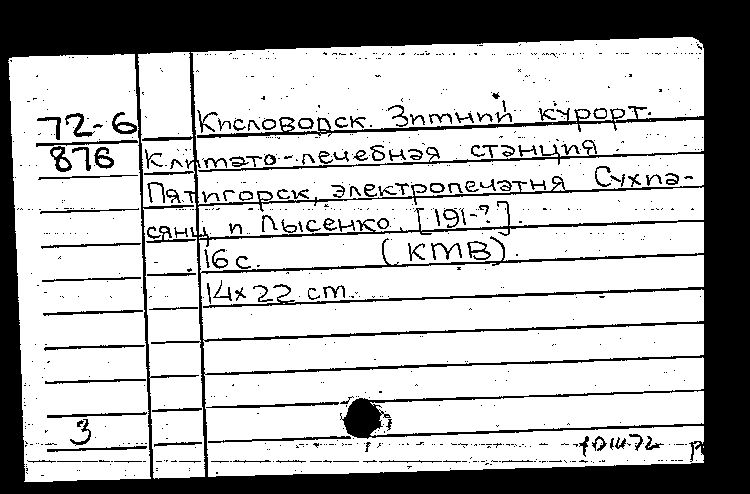 72-6 Кисловодск. Зимний курорт.
876 Климато-лечебная станция
Пятигорск, электропечатня Сухиа-
сянц и Лысенко. [191-?].
16 с. (КМВ)
14x22 см.
3